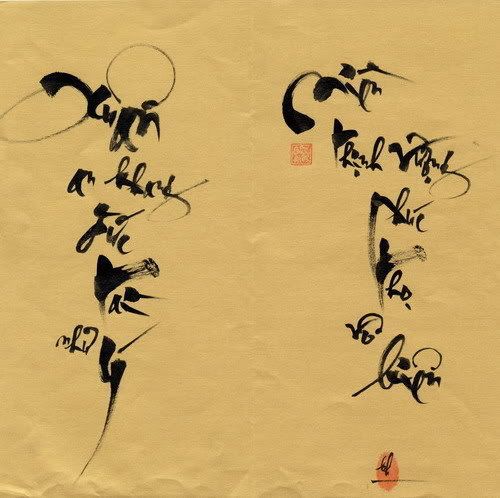 Xuân
an khang
đức
tài
như
ý
Niên
thịnh vượng
phúc
thọ
vô
biên